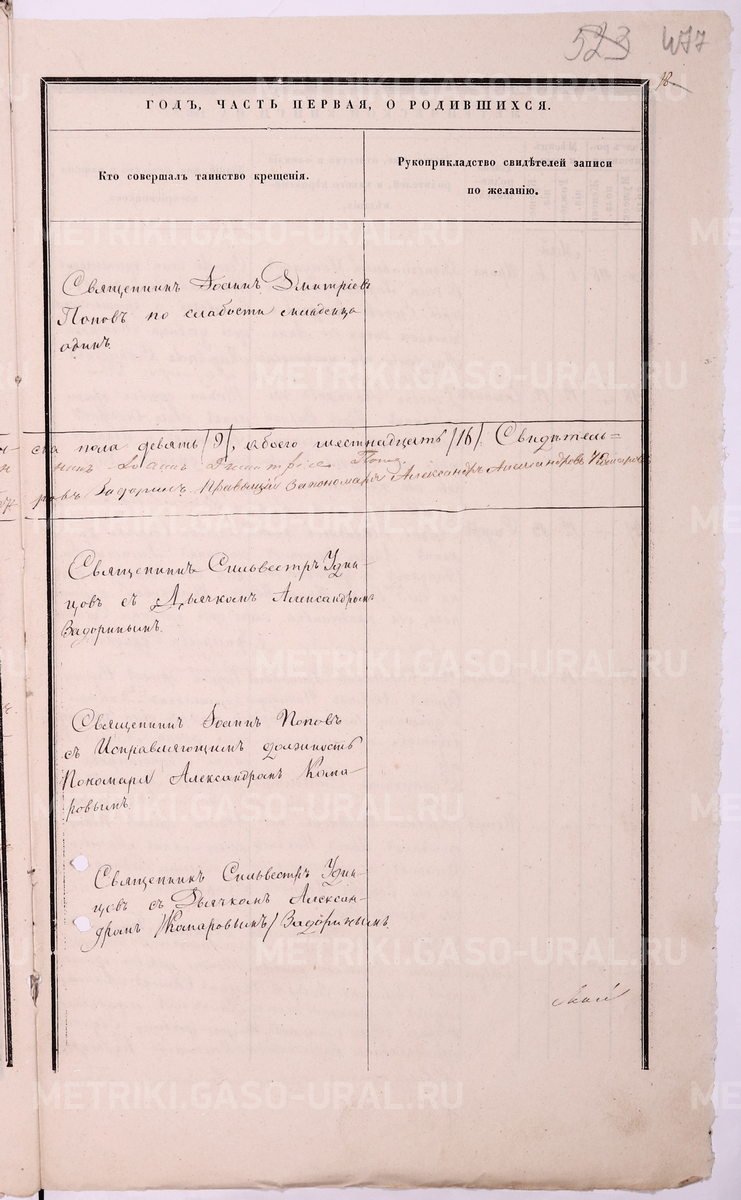 523 477
18
ГОДЪ, ЧАСТЬ ПЕРВАЯ, О РОДИВШИХСЯ.
Кто совершалъ таинство крещенія.
Рукоприкладство свидѣтелей записи
по желанію.
Священникъ Іоаннъ Дмитріевъ
Поповъ по слабости младенца
одинъ.
ска пола девять /9/, обоего шестнадцать /16/. Свидѣтель=
никъ Іоаннъ Дмитріевъ Попо
ровъ Задоринъ. Правящій Александръ Александровъ
Священникъ Сильвестръ Удин-
цовъ съ Дьячкомъ Александромъ
Задоринымъ.
Священникъ Іоаннъ Поповъ
съ Исправляющимъ должность
Пономаря Александромъ Кома-
ровымъ.
Священникъ Сильвестръ Удин-
цовъ съ Дьячкомъ Алексан-
дромъ /Комаровымъ/ Задоринымъ.
METRIKI.GASO-URAL.RU